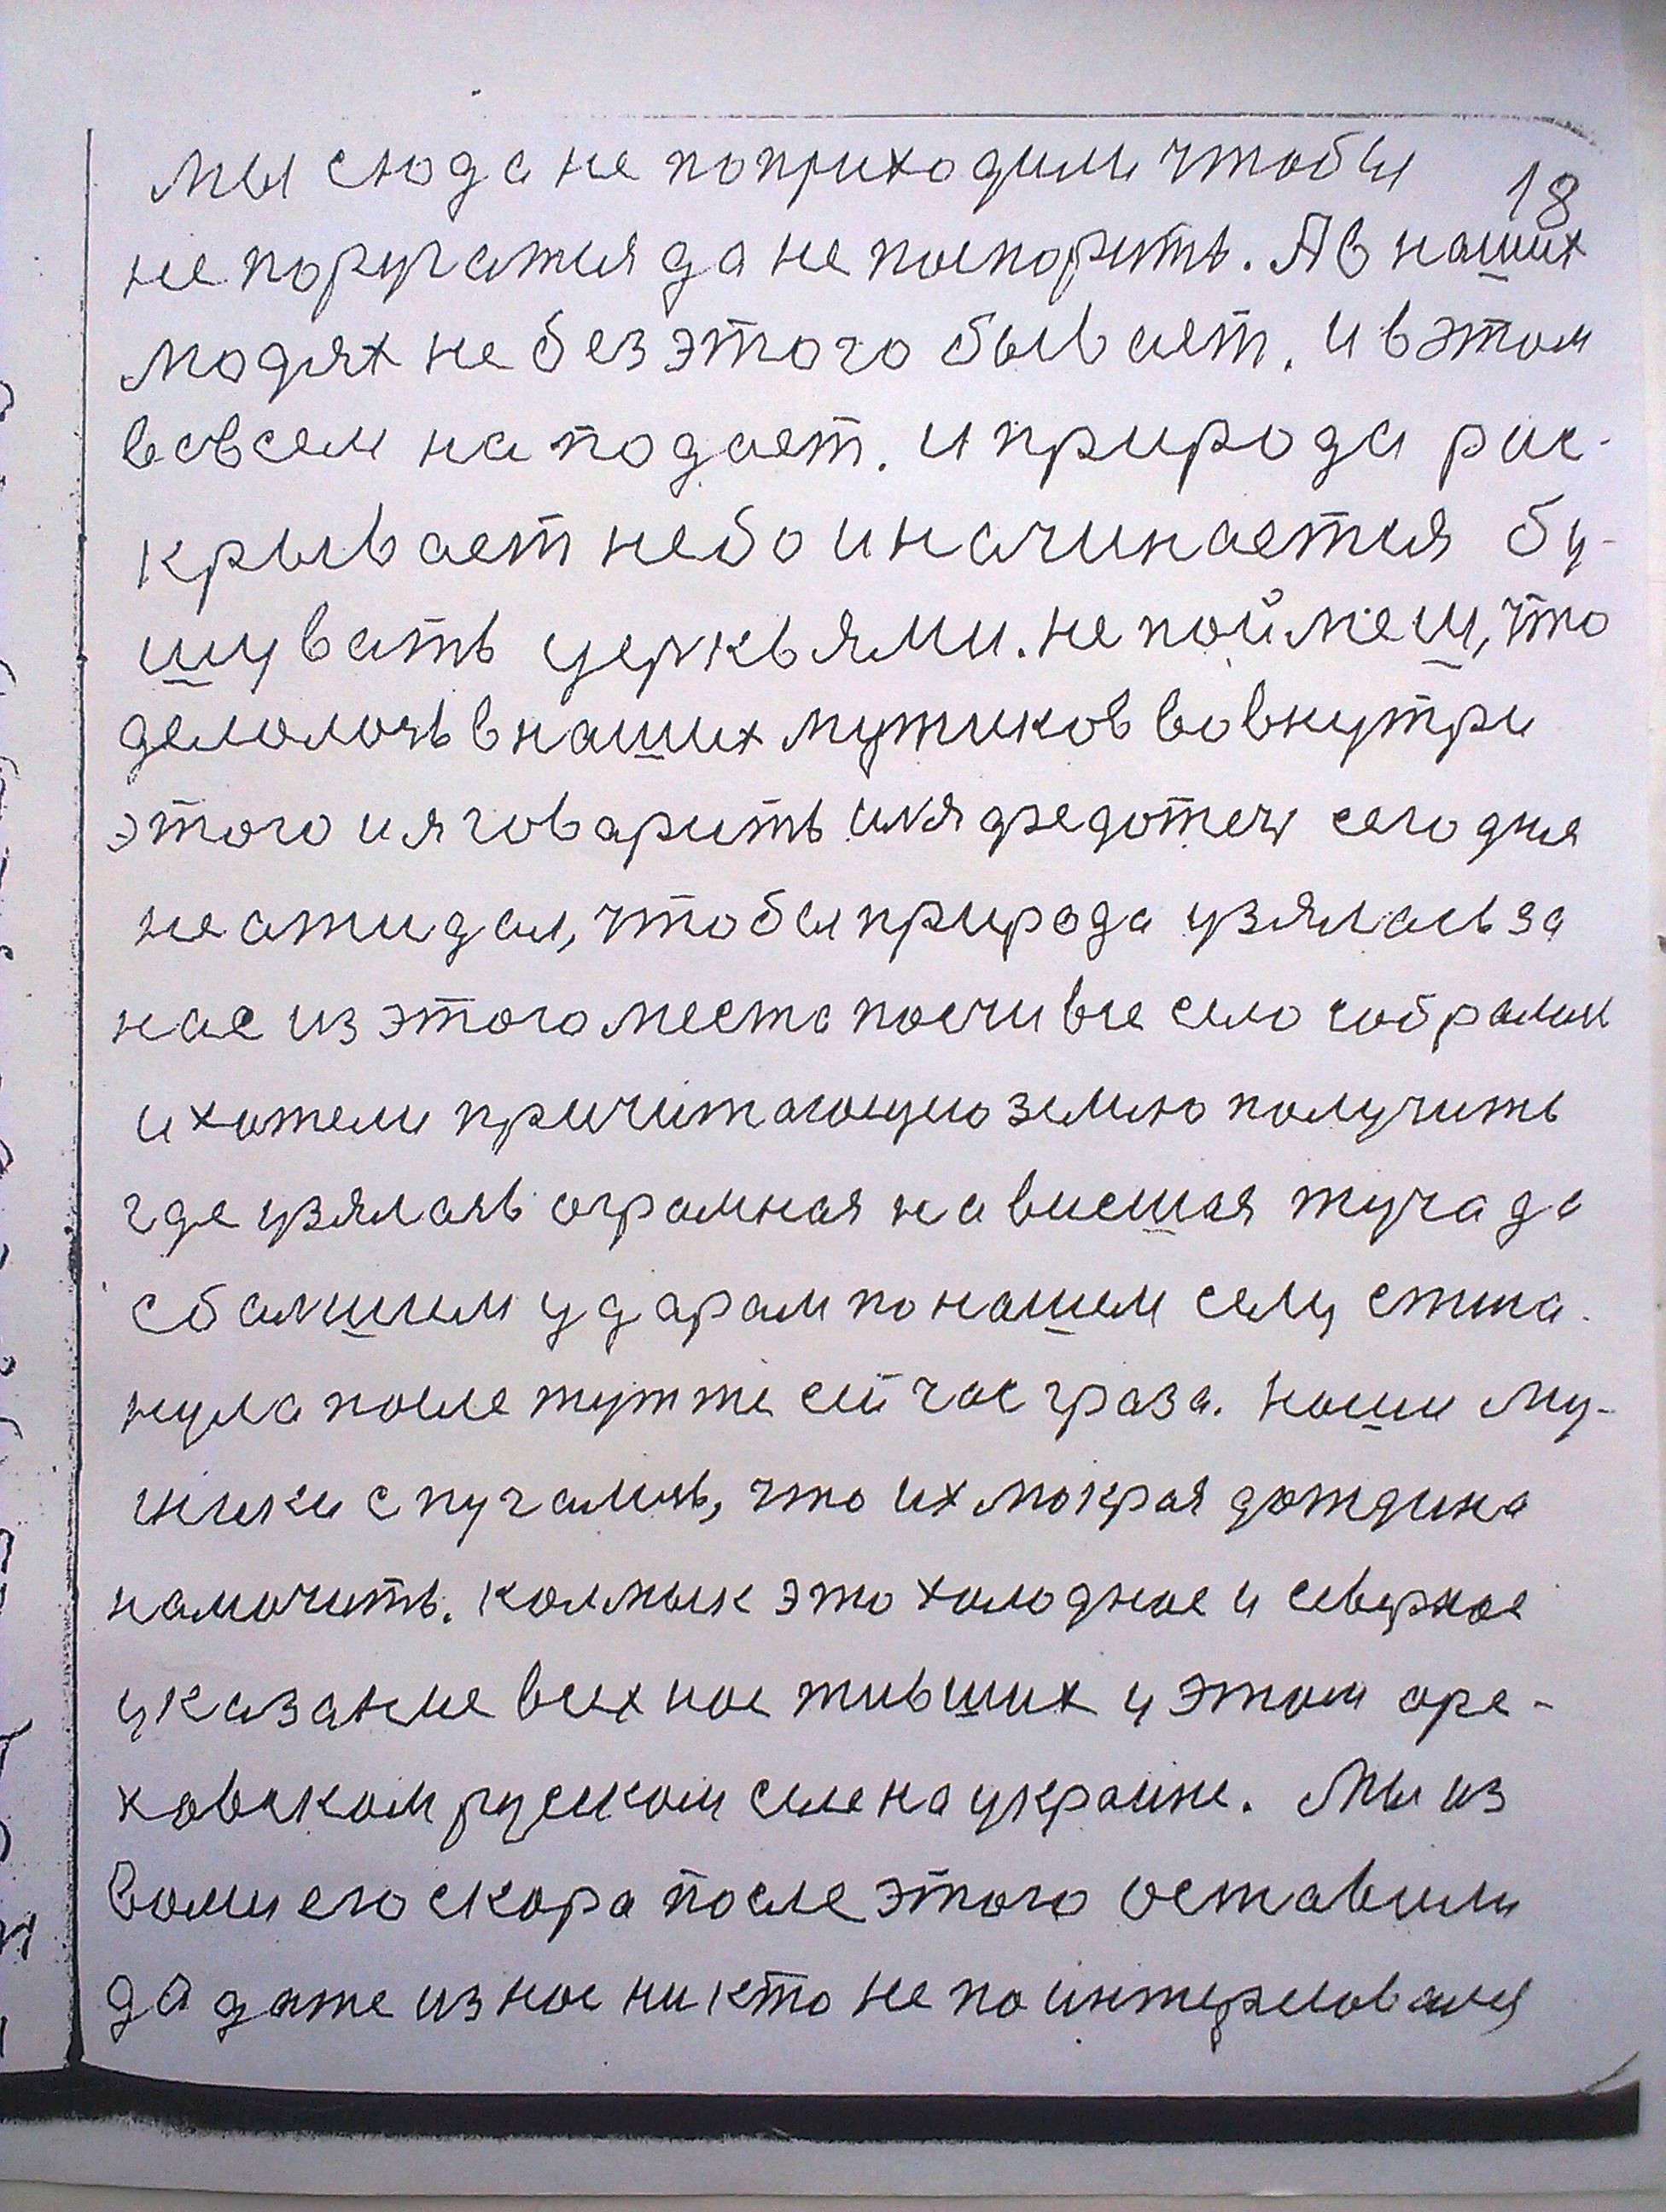 мы сюда не поприходили чтобы
18
не поругатця да не поспорить. А в наших
людях не без этого бывает. И в этом
во всем нападает. и природа рас-
крывает небо и начинается бу-
шувать церквями. не поймеш, что
делолось в наших мужиков во внутри
этого и я говарить сегодня
не ажидал, что бы природа узялась за
нас из этого места почти все село собралось
и хотели причитающую землю получить
где узялась аграмная нависшая туча да
с балшим ударам по нашем селу
нула после тут же сийчас граза. Наши му-
жики спугались, что их мокрая дождина
намочить. калмык это холодное и северное
указание всех нас живших у этом оре-
ховском руском селе на украине. Мы из
вами его скора после этого оставили
да даже из нас ни кто не поинтерисовался